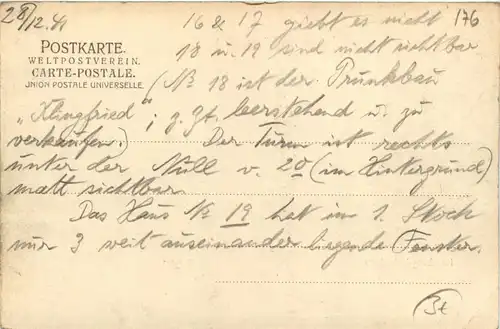 28/12.41
16 & 17 giebt es nicht 176
18 u. 19 sind nicht sichtbar
POSTKARTE.
WELTPOSTVEREIN.
CARTE-POSTALE.
UNION POSTALE UNIVERSELLE.
(№ 18 ist der Prunkbau
"Klingfried"; z. Zt. leerstehend u. zu
verkaufen.) Der Turm ist rechts
unter der Null v. 20 (im Hintergrund)
matt sichtbar.
Das Haus № 19 hat im 1. Stock
nur 3 weit auseinander liegende Fenster.